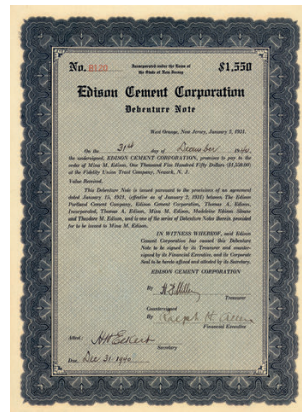 No. 0120
Incorporated under the Laws of
the State of New Jersey
$1,550
Edison Cement Corporation
Debenture Note
West Orange, New Jersey, January 2, 1931.
On the 31st day of December 1940,
the undersigned, EDISON CEMENT CORPORATION, promises to pay to the
order of Mina M. Edison, One Thousand Five Hundred Fifty Dollars ($1,550.00)
at the Fidelity Union Trust Company, Newark, N. J.
Value Received.
This Debenture Note is issued pursuant to the provisions of an agreement
dated January 15, 1931, (effective as of January 2, 1931) between The Edison
Portland Cement Company, Edison Cement Corporation, Thomas A. Edison,
Incorporated, Thomas A. Edison, Mina M. Edison, Madeleine Edison Sloane
and Theodore M. Edison, and is one of the series of Debenture Notes therein provided
for to be issued to Mina M. Edison.
IN WITNESS WHEREOF, said Edison
Cement Corporation has caused this Debenture
Note to be signed by its Treasurer and counter-
signed by its Financial Executive, and its Corporate
Seal to be hereto affixed and attested by its Secretary.
EDISON CEMENT CORPORATION
By H. F. Miller
Treasurer
Countersigned
By Ralph H. Allen
Financial Executive
Attest: H H Eckert
Secretary
Due Dec 31-1940